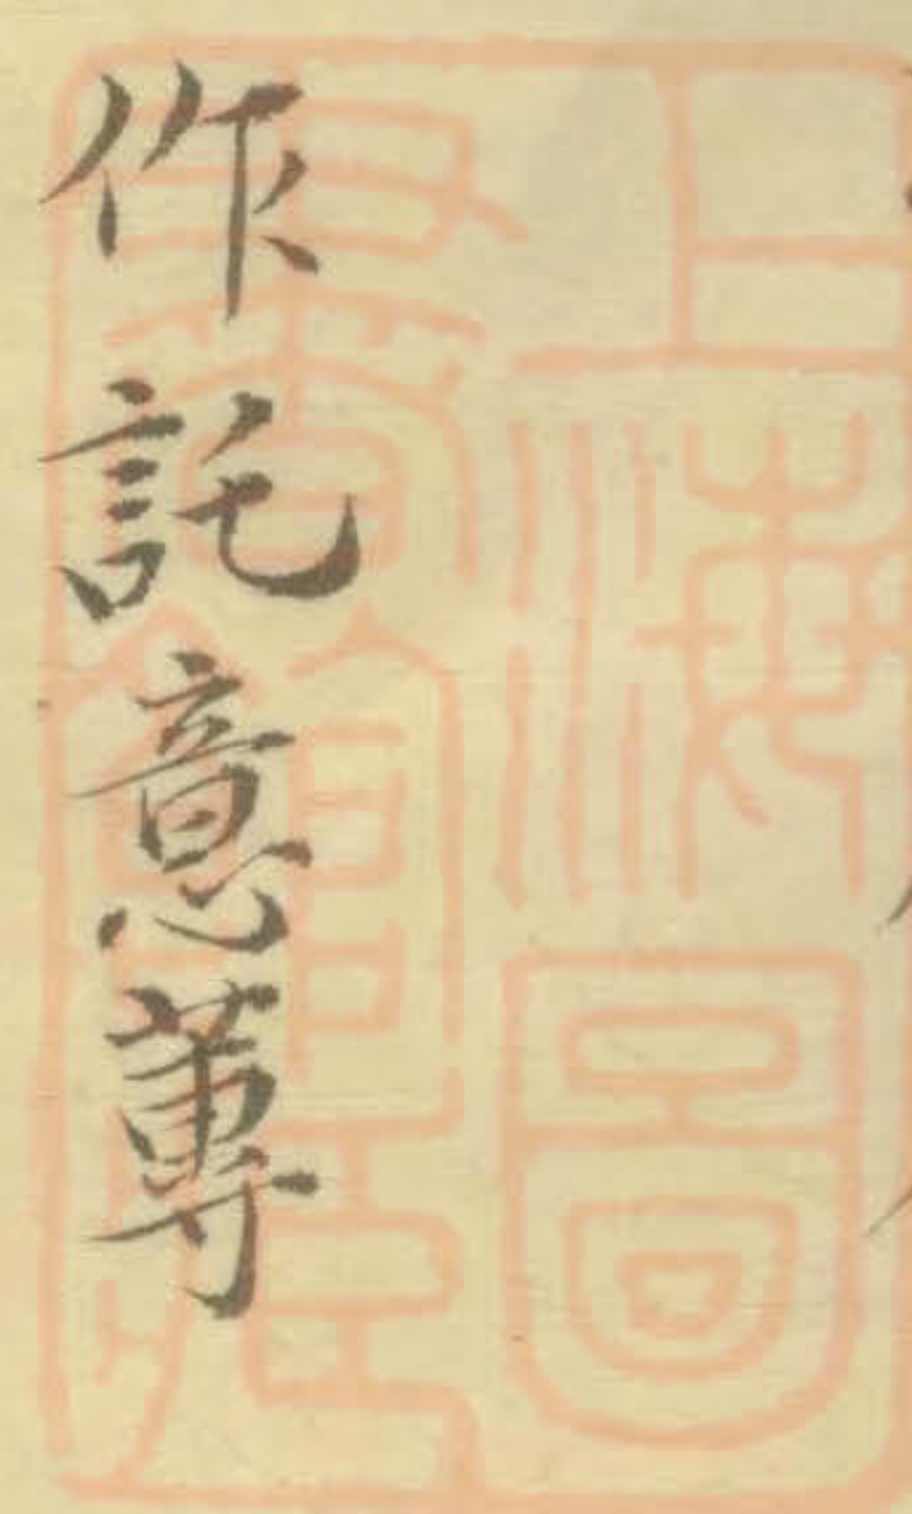 作託意蓴
上海圖
書館藏